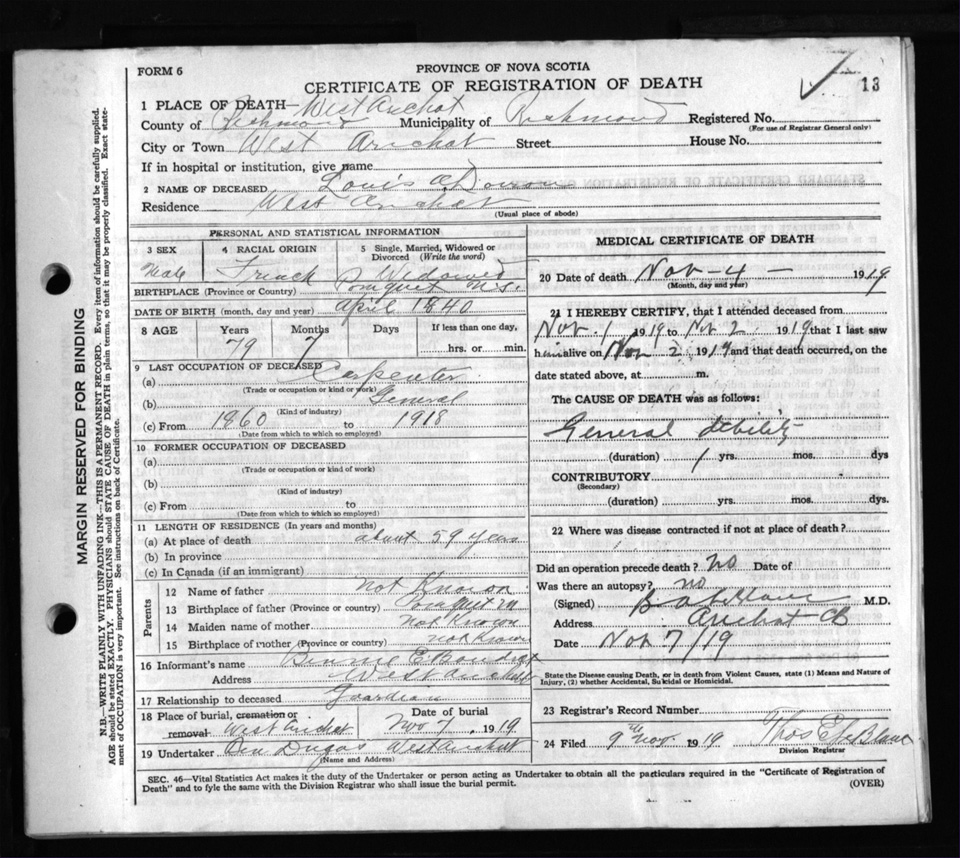 FORM 6
PROVINCE OF NOVA SCOTIA
CERTIFICATE OF REGISTRATION OF DEATH
13
1 PLACE OF DEATH— West Arichat
County of Richmond Municipality of Richmond Registered No.
(For use of Registrar General only)
City or Town West Arichat Street House No.
If in hospital or institution, give name
2 NAME OF DECEASED Louis A
Residence West Arichat
(Usual place of abode)
PERSONAL AND STATISTICAL INFORMATION
3 SEX 4 RACIAL ORIGIN 5 Single, Married, Widowed or Divorced (Write the word)
Male French Widowed
BIRTHPLACE (Province or Country) Pomquet N.S.
DATE OF BIRTH (month, day and year) April 1840
8 AGE Years Months Days If less than one day,
79 7 hrs. or min.
9 LAST OCCUPATION OF DECEASED
(a) Carpenter
(Trade or occupation or kind or work)
(b) General
(Kind of industry)
(c) From 1860 to 1918
(Date from which to which so employed)
10 FORMER OCCUPATION OF DECEASED
(a)
(Trade or occupation or kind of work)
(b)
(Kind of industry)
(c) From to
(Date from which to which so employed)
11 LENGTH OF RESIDENCE (In years and months)
(a) At place of death about 59 years
(b) In province
(c) In Canada (if an immigrant)
Parents
12 Name of father not Known
13 Birthplace of father (Province or country)
14 Maiden name of mother not Known
15 Birthplace of mother (Province or country) not Known
16 Informant's name
Address West Arichat
17 Relationship to deceased Guardian
18 Place of burial, cremation or removal West Arichat Date of burial Nov 7, 1919
19 Undertaker Ben Dugas West Arichat
(Name and Address)
MEDICAL CERTIFICATE OF DEATH
20 Date of death Nov - 4 - 1919
(Month, day and year)
21 I HEREBY CERTIFY, that I attended deceased from
Nov. 1 1919 to Nov 2 1919 that I last saw
him alive on Nov 2 1919 and that death occurred, on the
date stated above, at m.
The CAUSE OF DEATH was as follows:
General debility
(duration) 1 yrs. mos. dys
CONTRIBUTORY
(Secondary)
(duration) yrs. mos. dys.
22 Where was disease contracted if not at place of death?
Did an operation precede death? no Date of
Was there an autopsy? no
(Signed) M.D.
Address Arichat CB
Date Nov 7/19
State the Disease causing Death, or in death from Violent Causes, state (1) Means and Nature of
Injury, (2) whether Accidental, Suicidal or Homicidal.
23 Registrar's Record Number
24 Filed 9th Nov. 1919 Thos E LeBlanc
Division Registrar
SEC. 46—Vital Statistics Act makes it the duty of the Undertaker or person acting as Undertaker to obtain all the particulars required in the "Certificate of Registration of
Death" and to fyle the same with the Division Registrar who shall issue the burial permit.
(OVER)
MARGIN RESERVED FOR BINDING
N.B.—WRITE PLAINLY WITH UNFADING INK—THIS IS A PERMANENT RECORD. Every item of information should be carefully supplied.
AGE should be stated EXACTLY. PHYSICIANS should STATE CAUSE OF DEATH in plain terms, so that it may be properly classified. Exact state-
ment of OCCUPATION is very important. See instructions on back of Certificate.